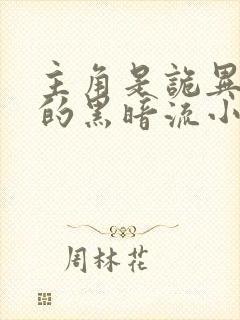 主角是诡异
的黑暗流小
周林花